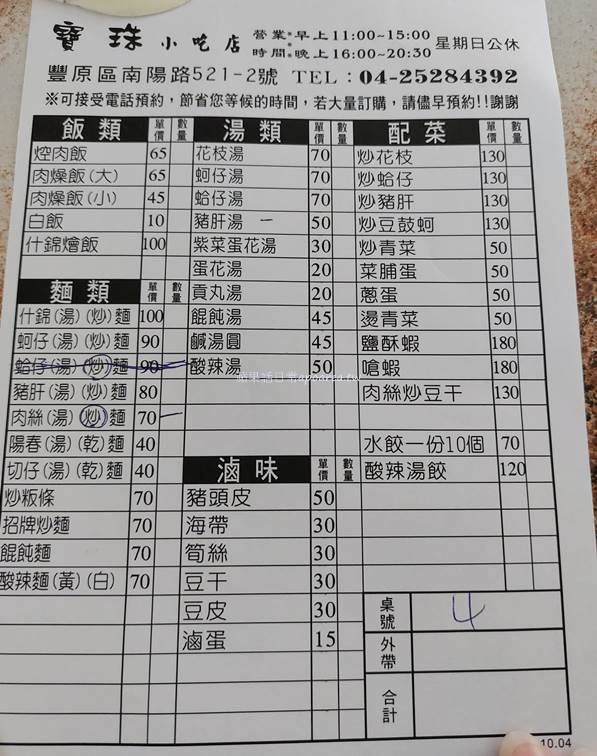 寶珠小吃店 營業時間:早上11:00~15:00 晚上16:00~20:30 星期日公休
豐原區南陽路521-2號 TEL：04-25284392
※可接受電話預約，節省您等候的時間，若大量訂購，請儘早預約!!謝謝
飯類 單價 數量
焢肉飯 65
肉燥飯(大) 65
肉燥飯(小) 45
白飯 10
什錦燴飯 100
麵類 單價 數量
什錦(湯)(炒)麵 100
蚵仔(湯)(炒)麵 90
蛤仔(湯)(炒)麵 90
豬肝(湯)(炒)麵 80
肉絲(湯)(炒)麵 70 一
陽春(湯)(乾)麵 40
切仔(湯)(乾)麵 40
炒粄條 70
招牌炒麵 70
餛飩麵 70
酸辣麵(黃)(白) 70
湯類 單價 數量
花枝湯 70
蚵仔湯 70
蛤仔湯 70
豬肝湯 一 50
紫菜蛋花湯 30
蛋花湯 20
貢丸湯 20
餛飩湯 45
鹹湯圓 45
酸辣湯 50
滷味 單價 數量
豬頭皮 50
海帶 30
筍絲 30
豆干 30
豆皮 30
滷蛋 15
配菜 單價 數量
炒花枝 130
炒蛤仔 130
炒豬肝 130
炒豆鼓蚵 130
炒青菜 50
菜脯蛋 50
蔥蛋 50
燙青菜 50
鹽酥蝦 180
嗆蝦 180
肉絲炒豆干 130
水餃一份10個 70
酸辣湯餃 120
桌號 4
外帶
合計
10.04